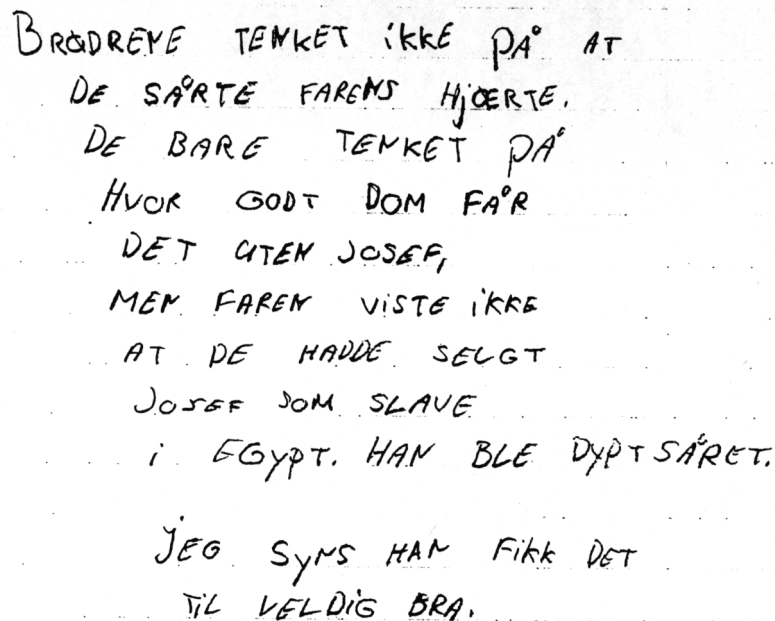 BRØDRENE TENKET iKKE PÅ AT
DE SÅRTE FARENS HJÆRTE.
DE BARE TENKET PÅ
HVOR GODT DOM FÅR
DET UTEN JOSEF,
MEN FAREN VISTE iKKE
AT DE HADDE SELGT
JOSEF SOM SLAVE
i EGYPT. HAN BLE DYPT SÅRET.
JEG SYNS HAN FIKK DET
TiL VELDiG BRA.